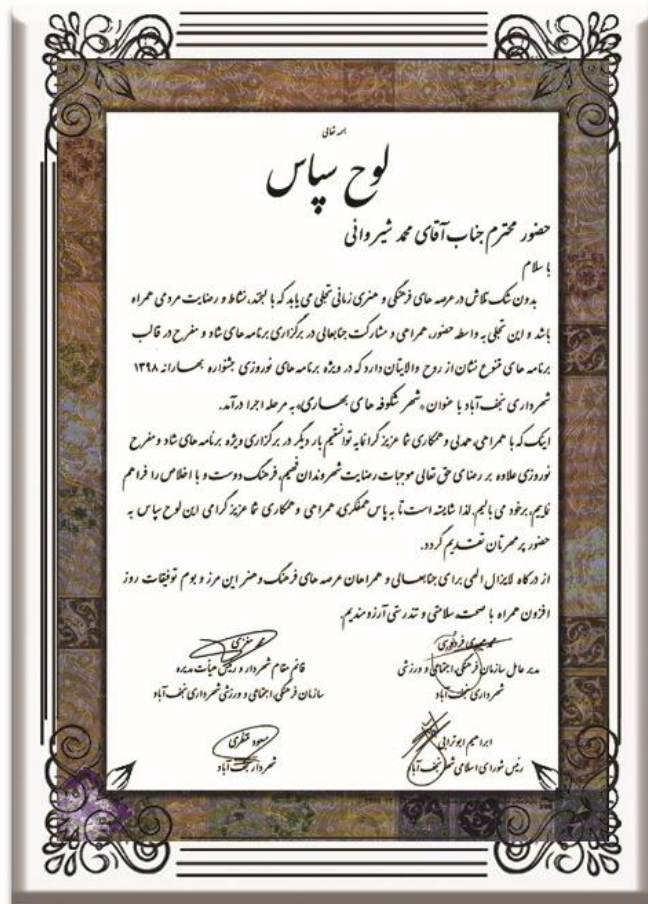 بسمه تعالی
لوح سپاس
حضور محترم جناب آقای محمد شیروانی
با سلام
بدون شک تلاش در عرصه های فرهنگی و هنری زمانی تجلی می یابد که با لبخند، نشاط و رضایت مردمی همراه
باشد و این تجلی به واسطه حضور، همراهی و مشارکت جنابعالی در برگزاری برنامه های شاد و مفرح در قالب
برنامه های متنوع نشان از روح والایتان دارد که در ویژه برنامه های نوروزی جشنواره بهارانه ۱۳۹۸
شهرداری نجف آباد با عنوان «شهر شکوفه های بهاری» به مرحله اجرا درآمد.
اینک که با همراهی، همدلی و همکاری شما عزیز گرانمایه توانستیم بار دیگر در برگزاری ویژه برنامه های شاد و مفرح
نوروزی علاوه بر رضای حق تعالی موجبات رضایت شهروندان فهیم، فرهنگ دوست و با اخلاص را فراهم
نماییم، برخود می بالیم. لذا شایسته است تا به پاس همفکری، همراهی و همکاری شما عزیز گرامی این لوح سپاس به
حضور پر مهرتان تقدیم گردد.
از درگاه لایزال الهی برای جنابعالی و همراهان عرصه های فرهنگ و هنر این مرز و بوم توفیقات روز
افزون همراه با صحت، سلامتی و تندرستی آرزومندیم.
مدیر عامل سازمان فرهنگی، اجتماعی و ورزشی
شهرداری نجف آباد
قائم مقام شهردار و رئیس هیأت مدیره
سازمان فرهنگی، اجتماعی و ورزشی شهرداری نجف آباد
ابراهیم ابوترابی
رئیس شورای اسلامی شهر نجف آباد
مسعود منتظری
شهردار نجف آباد